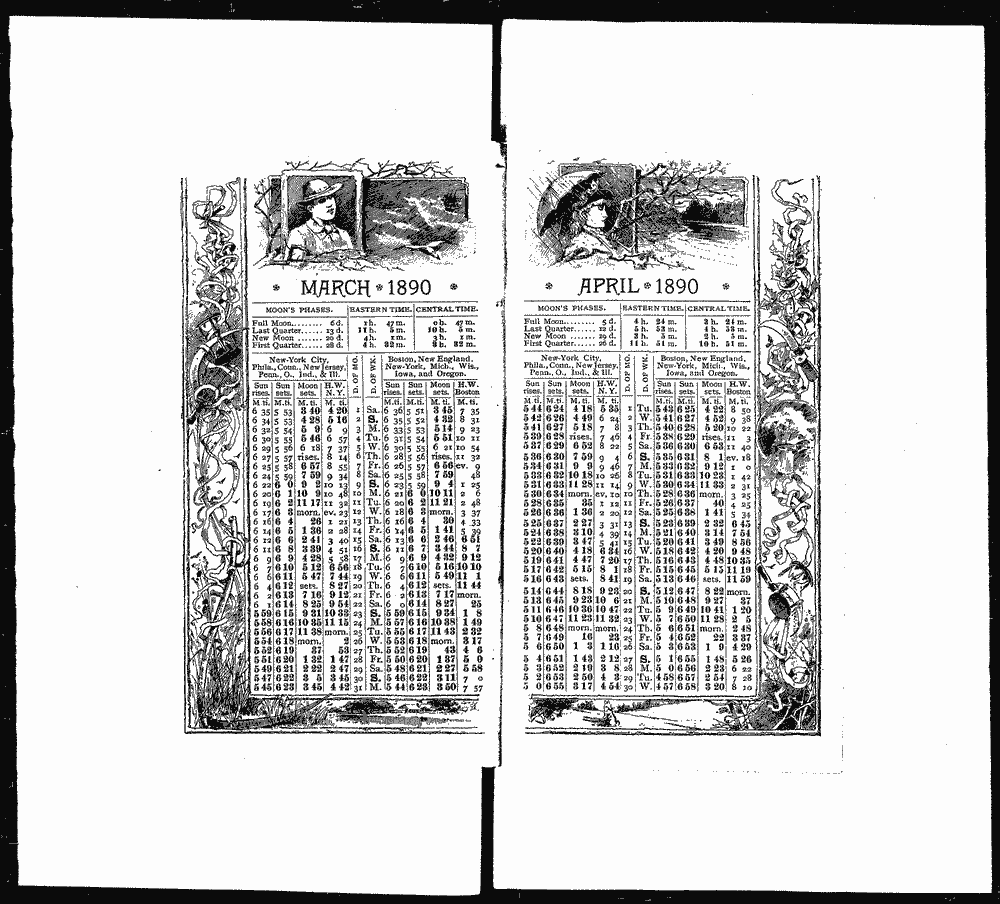 * MARCH * 1890 *
MOON'S PHASES. EASTERN TIME. CENTRAL TIME.
Full Moon........ 6 d. 1 h. 47 m. 0 h. 47 m.
Last Quarter...... 13 d. 11 h. 5 m. 10 h. 5 m.
New Moon...... 20 d. 4 h. 1 m. 3 h. 1 m.
First Quarter...... 28 d. 4 h. 32 m. 3 h. 32 m.
New-York City,
Phila., Conn., New Jersey,
Penn., O., Ind., & Ill.
D. OF MO.
D. OF WK.
Boston, New England,
New-York, Mich., Wis.,
Iowa, and Oregon.
Sun rises. Sun sets. Moon sets. H.W. N.Y. Sun rises. Sun sets. Moon sets. H.W. Boston
M. ti. M. ti. M. ti. M. ti.
6 35 5 53 3 40 4 20 1 Sa. 6 36 5 51 3 45 7 35
6 34 5 53 4 28 5 16 2 S. 6 35 5 52 4 32 8 31
6 32 5 54 5 9 6 9 3 M. 6 33 5 53 5 14 9 23
6 30 5 55 5 46 6 57 4 Tu. 6 31 5 54 5 51 10 11
6 29 5 56 6 18 7 37 5 W. 6 30 5 55 6 21 10 54
6 27 5 57 rises. 8 14 6 Th. 6 28 5 56 rises. 11 32
6 25 5 58 6 57 8 55 7 Fr. 6 26 5 57 6 56 ev. 9
6 24 5 59 7 59 9 34 8 Sa. 6 25 5 58 7 59 48
6 22 6 0 9 2 10 13 9 S. 6 23 5 59 9 4 1 25
6 20 6 1 10 9 10 48 10 M. 6 21 6 0 10 11 2 6
6 19 6 2 11 17 11 32 11 Tu. 6 20 6 2 11 21 2 48
6 17 6 3 morn. ev. 23 12 W. 6 18 6 3 morn. 3 37
6 16 6 4 26 1 21 13 Th. 6 16 6 4 30 4 33
6 14 6 5 1 36 2 28 14 Fr. 6 14 6 5 1 41 5 39
6 12 6 6 2 41 3 40 15 Sa. 6 13 6 6 2 46 6 51
6 11 6 8 3 39 4 51 16 S. 6 11 6 7 3 44 8 7
6 9 6 9 4 28 5 55 17 M. 6 9 6 8 4 32 9 12
6 7 6 10 5 12 6 56 18 Tu. 6 7 6 10 5 16 10 10
6 6 6 11 5 47 7 44 19 W. 6 6 6 11 5 49 11 1
6 4 6 12 sets. 8 27 20 Th. 6 4 6 12 sets. 11 44
6 2 6 13 7 16 9 12 21 Fr. 6 2 6 13 7 17 morn.
6 1 6 14 8 25 9 54 22 Sa. 6 0 6 14 8 27 25
5 59 6 15 9 31 10 33 23 S. 5 59 6 15 9 34 1 8
5 58 6 16 10 35 11 15 24 M. 5 57 6 16 10 38 1 49
5 56 6 17 11 38 morn. 25 Tu. 5 55 6 17 11 43 2 32
5 54 6 18 morn. 2 26 W. 5 53 6 18 morn. 3 17
5 52 6 19 37 53 27 Th. 5 52 6 19 43 4 6
5 51 6 20 1 32 1 47 28 Fr. 5 50 6 20 1 37 5 0
5 49 6 21 2 22 2 47 29 Sa. 5 48 6 21 2 27 5 58
5 47 6 22 3 5 3 45 30 S. 5 46 6 22 3 11 7 0
5 45 6 23 3 45 4 42 31 M. 5 44 6 23 3 50 7 57
* APRIL * 1890 *
MOON'S PHASES. EASTERN TIME. CENTRAL TIME.
Full Moon......... 5 d. 4 h. 24 m. 3 h. 24 m.
Last Quarter...... 12 d. 5 h. 53 m. 4 h. 53 m.
New Moon ........ 19 d. 3 h. 5 m. 2 h. 5 m.
First Quarter...... 26 d. 11 h. 51 m. 10 h. 51 m.
New-York City,
Phila., Conn., New Jersey,
Penn., O., Ind., & Ill.
D. OF MO.
D. OF WK.
Boston, New England,
New-York, Mich., Wis.,
Iowa, and Oregon.
Sun rises. Sun sets. Moon sets. H.W. N.Y. Sun rises. Sun sets. Moon sets. H.W. Boston
M. ti. M. ti. M. ti. M. ti.
5 44 6 24 4 18 5 35 1 Tu. 5 43 6 25 4 22 8 50
5 42 6 26 4 49 6 24 2 W. 5 41 6 27 4 52 9 38
5 41 6 27 5 18 7 8 3 Th. 5 40 6 28 5 20 10 22
5 39 6 28 rises. 7 46 4 Fr. 5 38 6 29 rises. 11 3
5 37 6 29 6 52 8 22 5 Sa. 5 36 6 30 6 53 11 40
5 36 6 30 7 59 9 4 6 S. 5 35 6 31 8 1 ev. 18
5 34 6 31 9 9 9 46 7 M. 5 33 6 32 9 12 1 0
5 33 6 32 10 18 10 26 8 Tu. 5 31 6 33 10 23 1 42
5 31 6 33 11 28 11 14 9 W. 5 30 6 34 11 33 2 31
5 30 6 34 morn. ev. 10 10 Th. 5 28 6 36 morn. 3 25
5 28 6 35 35 1 12 11 Fr. 5 26 6 37 40 4 25
5 26 6 36 1 36 2 20 12 Sa. 5 25 6 38 1 41 5 34
5 25 6 37 2 27 3 31 13 S. 5 23 6 39 2 32 6 45
5 24 6 38 3 10 4 39 14 M. 5 21 6 40 3 14 7 54
5 22 6 39 3 47 5 41 15 Tu. 5 20 6 41 3 49 8 56
5 20 6 40 4 18 6 34 16 W. 5 18 6 42 4 20 9 48
5 19 6 41 4 47 7 20 17 Th. 5 16 6 43 4 48 10 35
5 17 6 42 5 15 8 1 18 Fr. 5 15 6 45 5 15 11 19
5 16 6 43 sets. 8 41 19 Sa. 5 13 6 46 sets. 11 59
5 14 6 44 8 18 9 23 20 S. 5 12 6 47 8 22 morn.
5 13 6 45 9 23 10 6 21 M. 5 10 6 48 9 27 37
5 11 6 46 10 36 10 47 22 Tu. 5 9 6 49 10 41 1 20
5 10 6 47 11 23 11 32 23 W. 5 7 6 50 11 28 2 5
5 8 6 48 morn. morn. 24 Th. 5 6 6 51 morn. 2 48
5 7 6 49 16 23 25 Fr. 5 4 6 52 22 3 37
5 6 6 50 1 3 1 16 26 Sa. 5 3 6 53 1 9 4 29
5 4 6 51 1 43 2 12 27 S. 5 1 6 55 1 48 5 26
5 3 6 52 2 19 3 8 28 M. 5 0 6 56 2 23 6 22
5 2 6 53 2 50 4 3 29 Tu. 4 58 6 57 2 54 7 28
5 0 6 55 3 17 4 54 30 W. 4 57 6 58 3 20 8 20